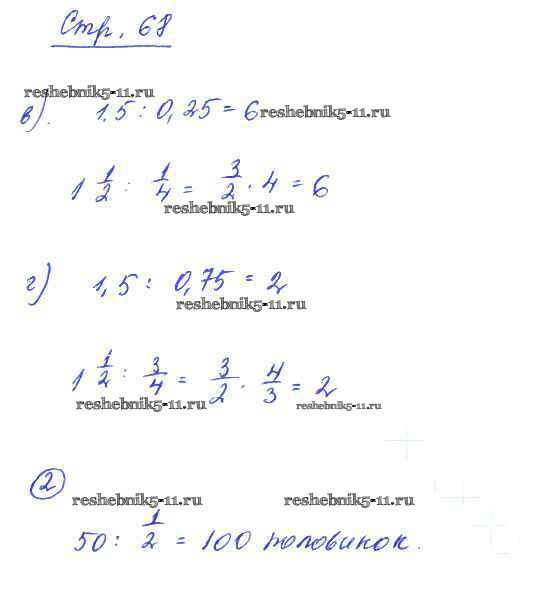 Стр. 68
reshebnik5-11.ru
в). 1.5 : 0,25 = 6
reshebnik5-11.ru
1 1/2 : 1/4 = 3/2 · 4 = 6
reshebnik5-11.ru
г) 1,5 : 0,75 = 2
reshebnik5-11.ru
1 1/2 : 3/4 = 3/2 · 4/3 = 2
reshebnik5-11.ru reshebnik5-11.ru
2
reshebnik5-11.ru reshebnik5-11.ru
50 : 1/2 = 100 половинок.